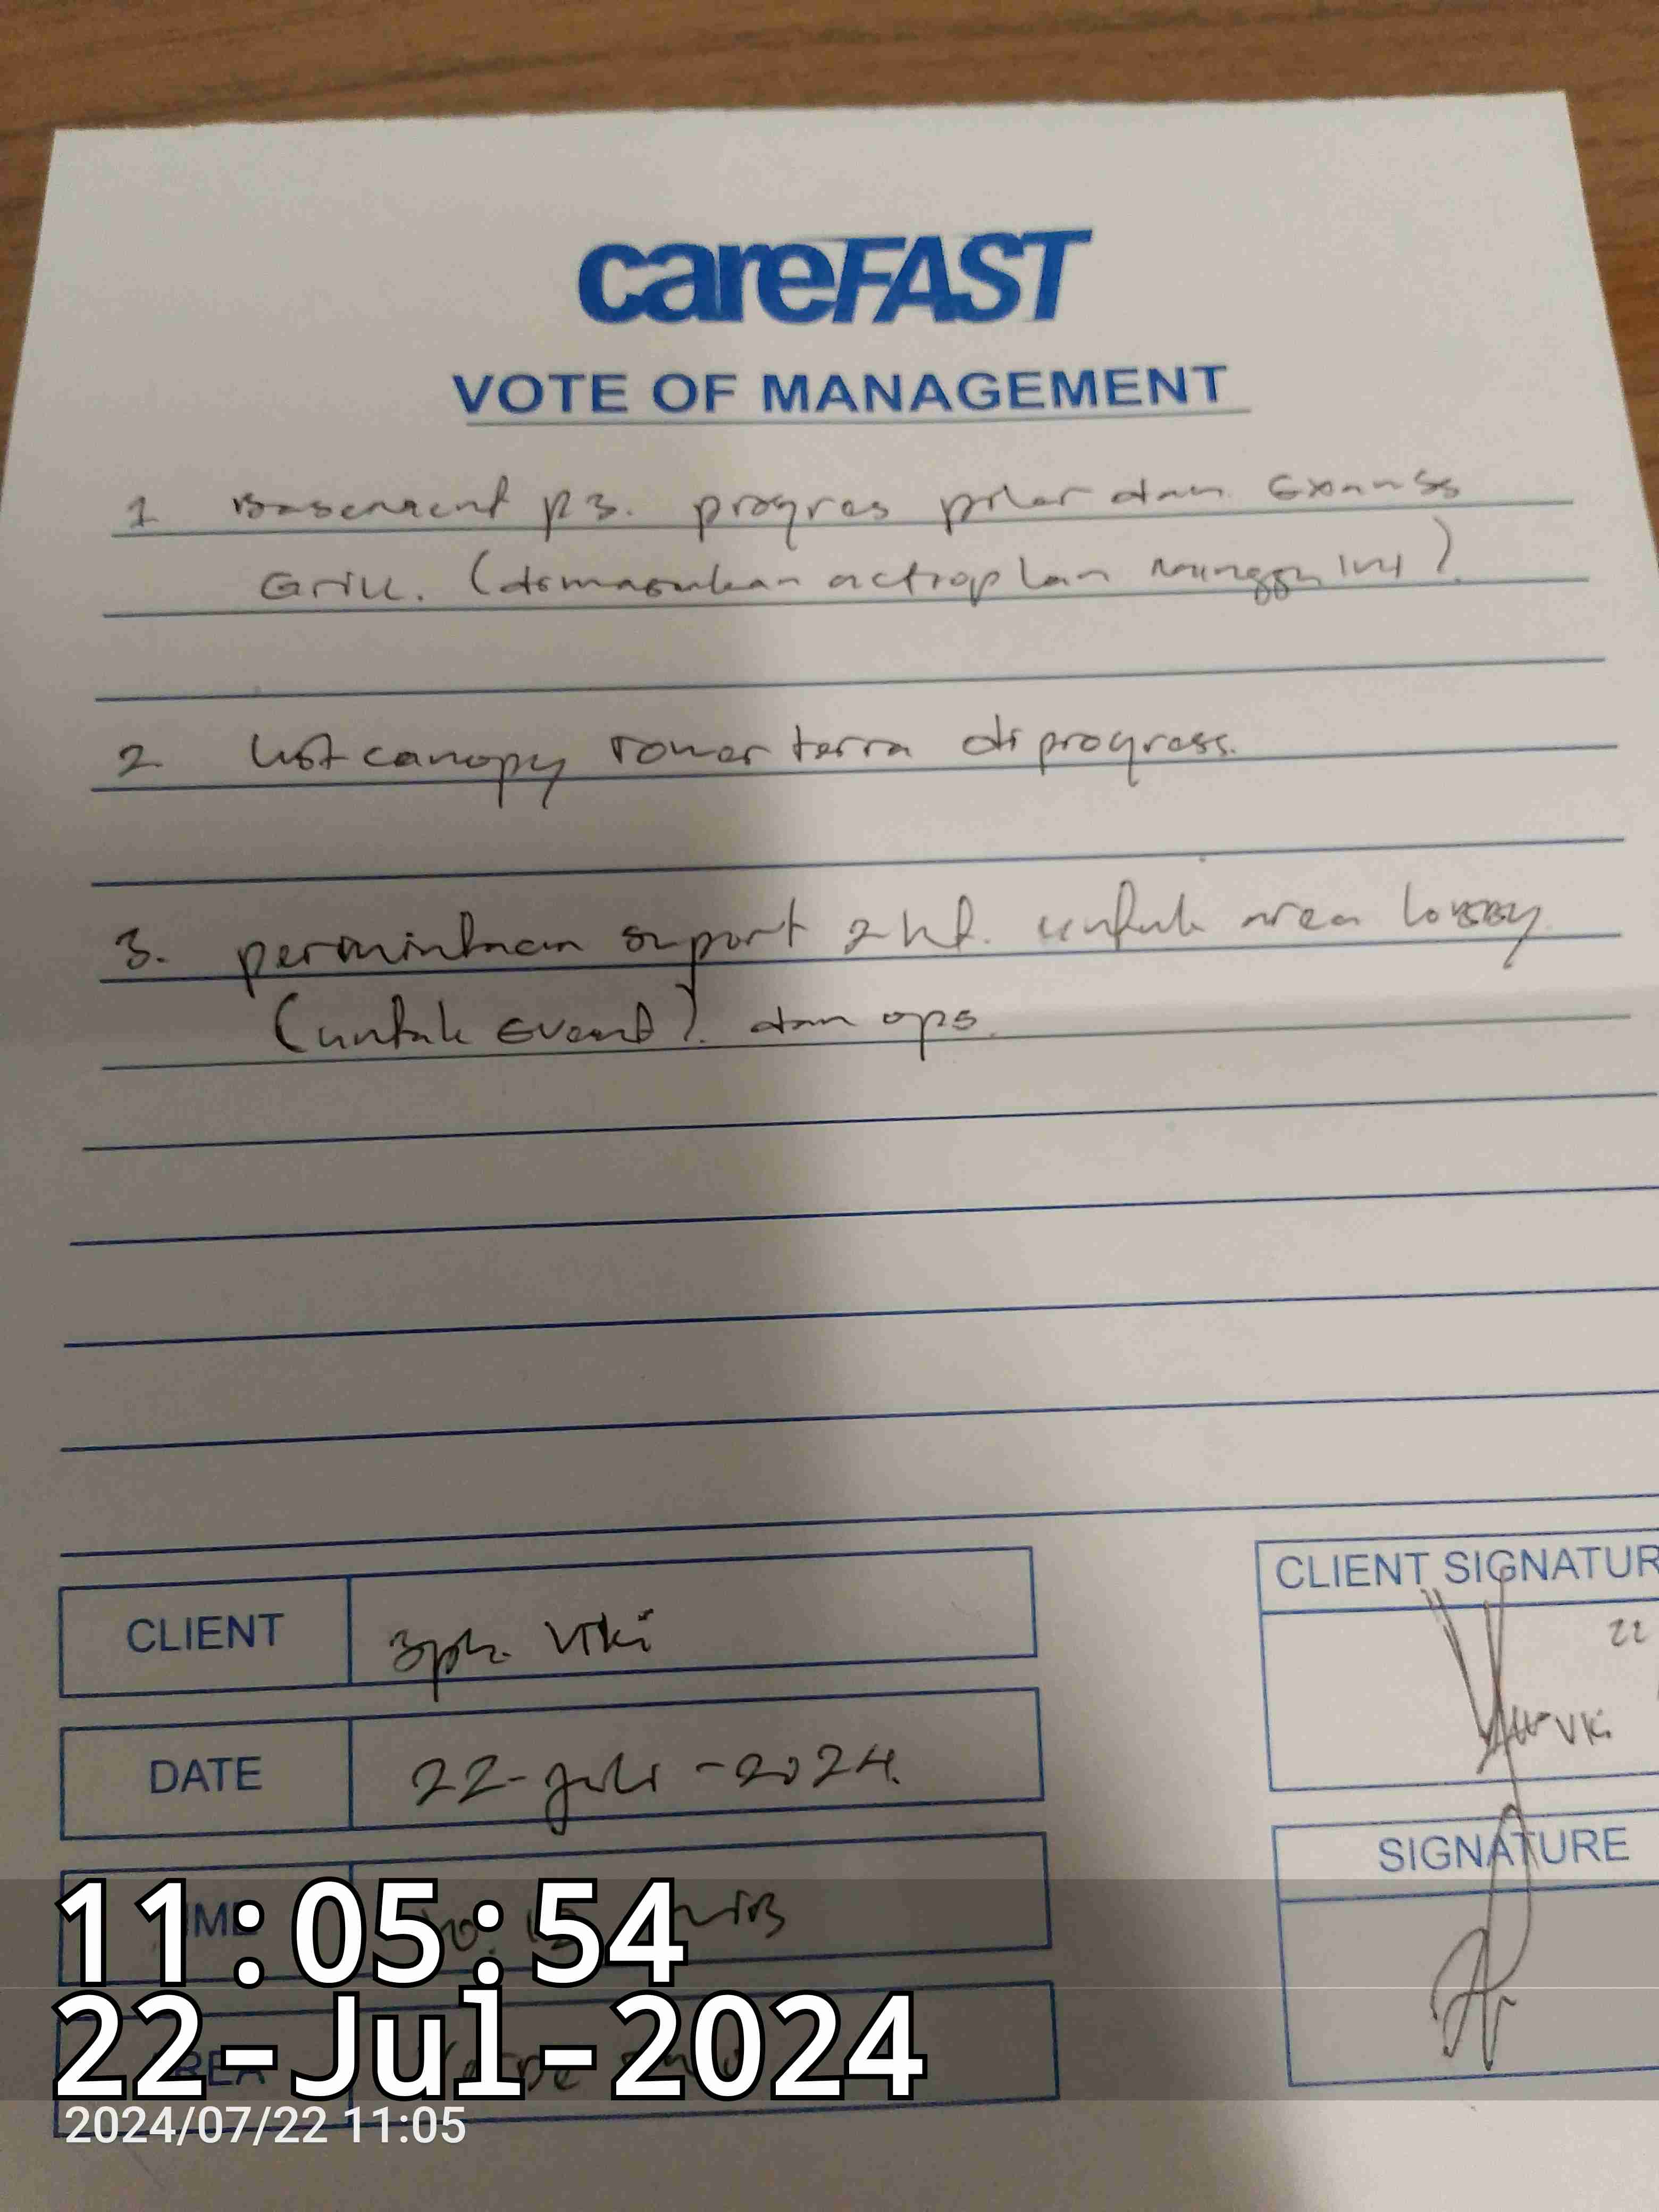 careFAST
VOTE OF MANAGEMENT
1 Basement P3. progres pilar dan
Grill. (dimasukan actioplan minggu ini).
2 list canopy Tower terra di progress.
3. permintaan suport 2 hk. untuk area lobby
(untuk Event). dan ops.
CLIENT
Bpk. Viki
CLIENT SIGNATUR
22
DATE
22-Juli-2024.
SIGNATURE
11:05:54
22-Jul-2024
2024/07/22 11:05